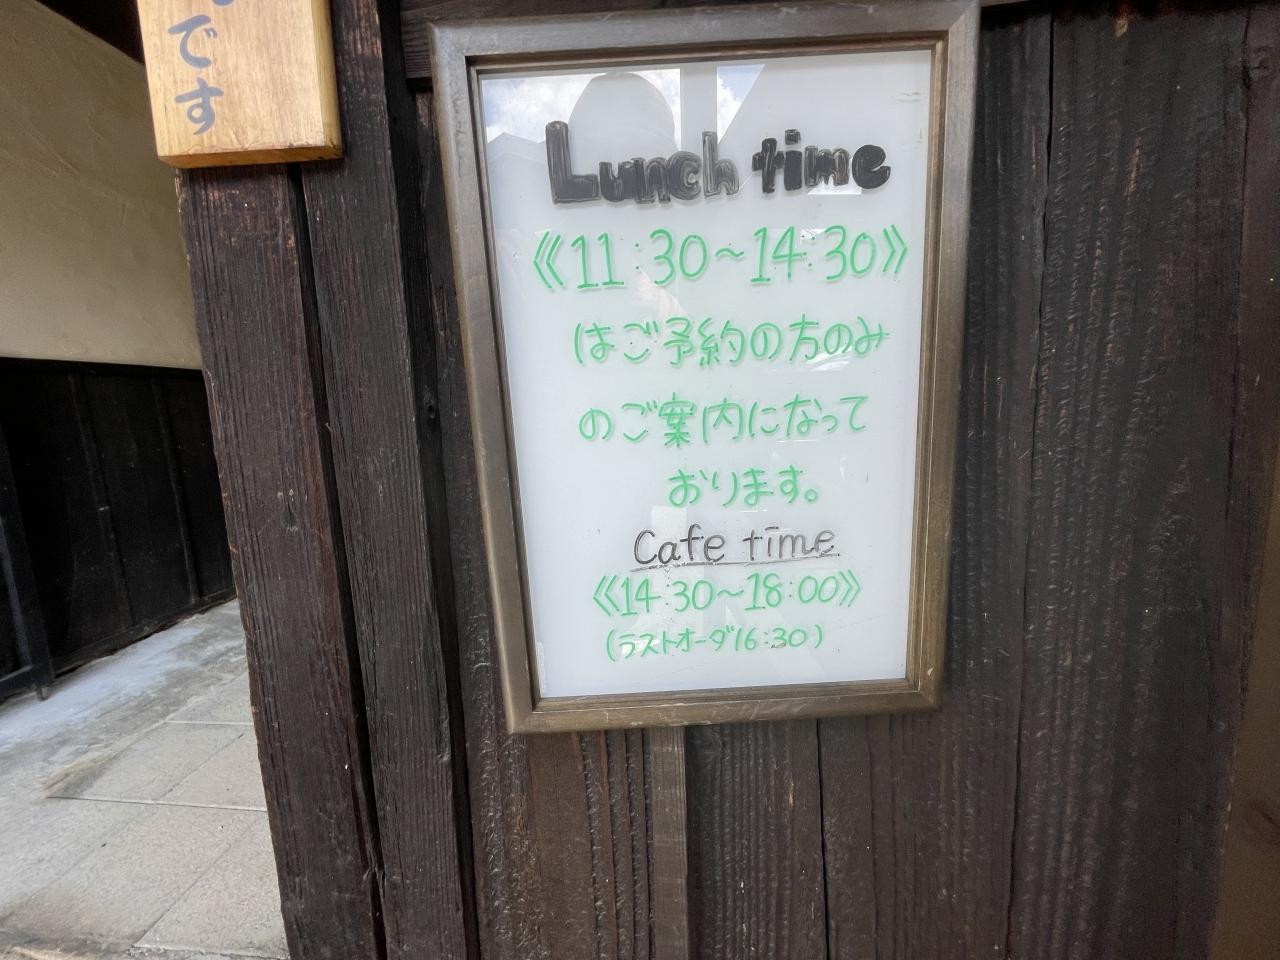 です
Lunch time
《11:30～14:30》
はご予約の方のみ
のご案内になって
おります。
Cafe time
《14:30～18:00》
(ラストオーダ16:30)